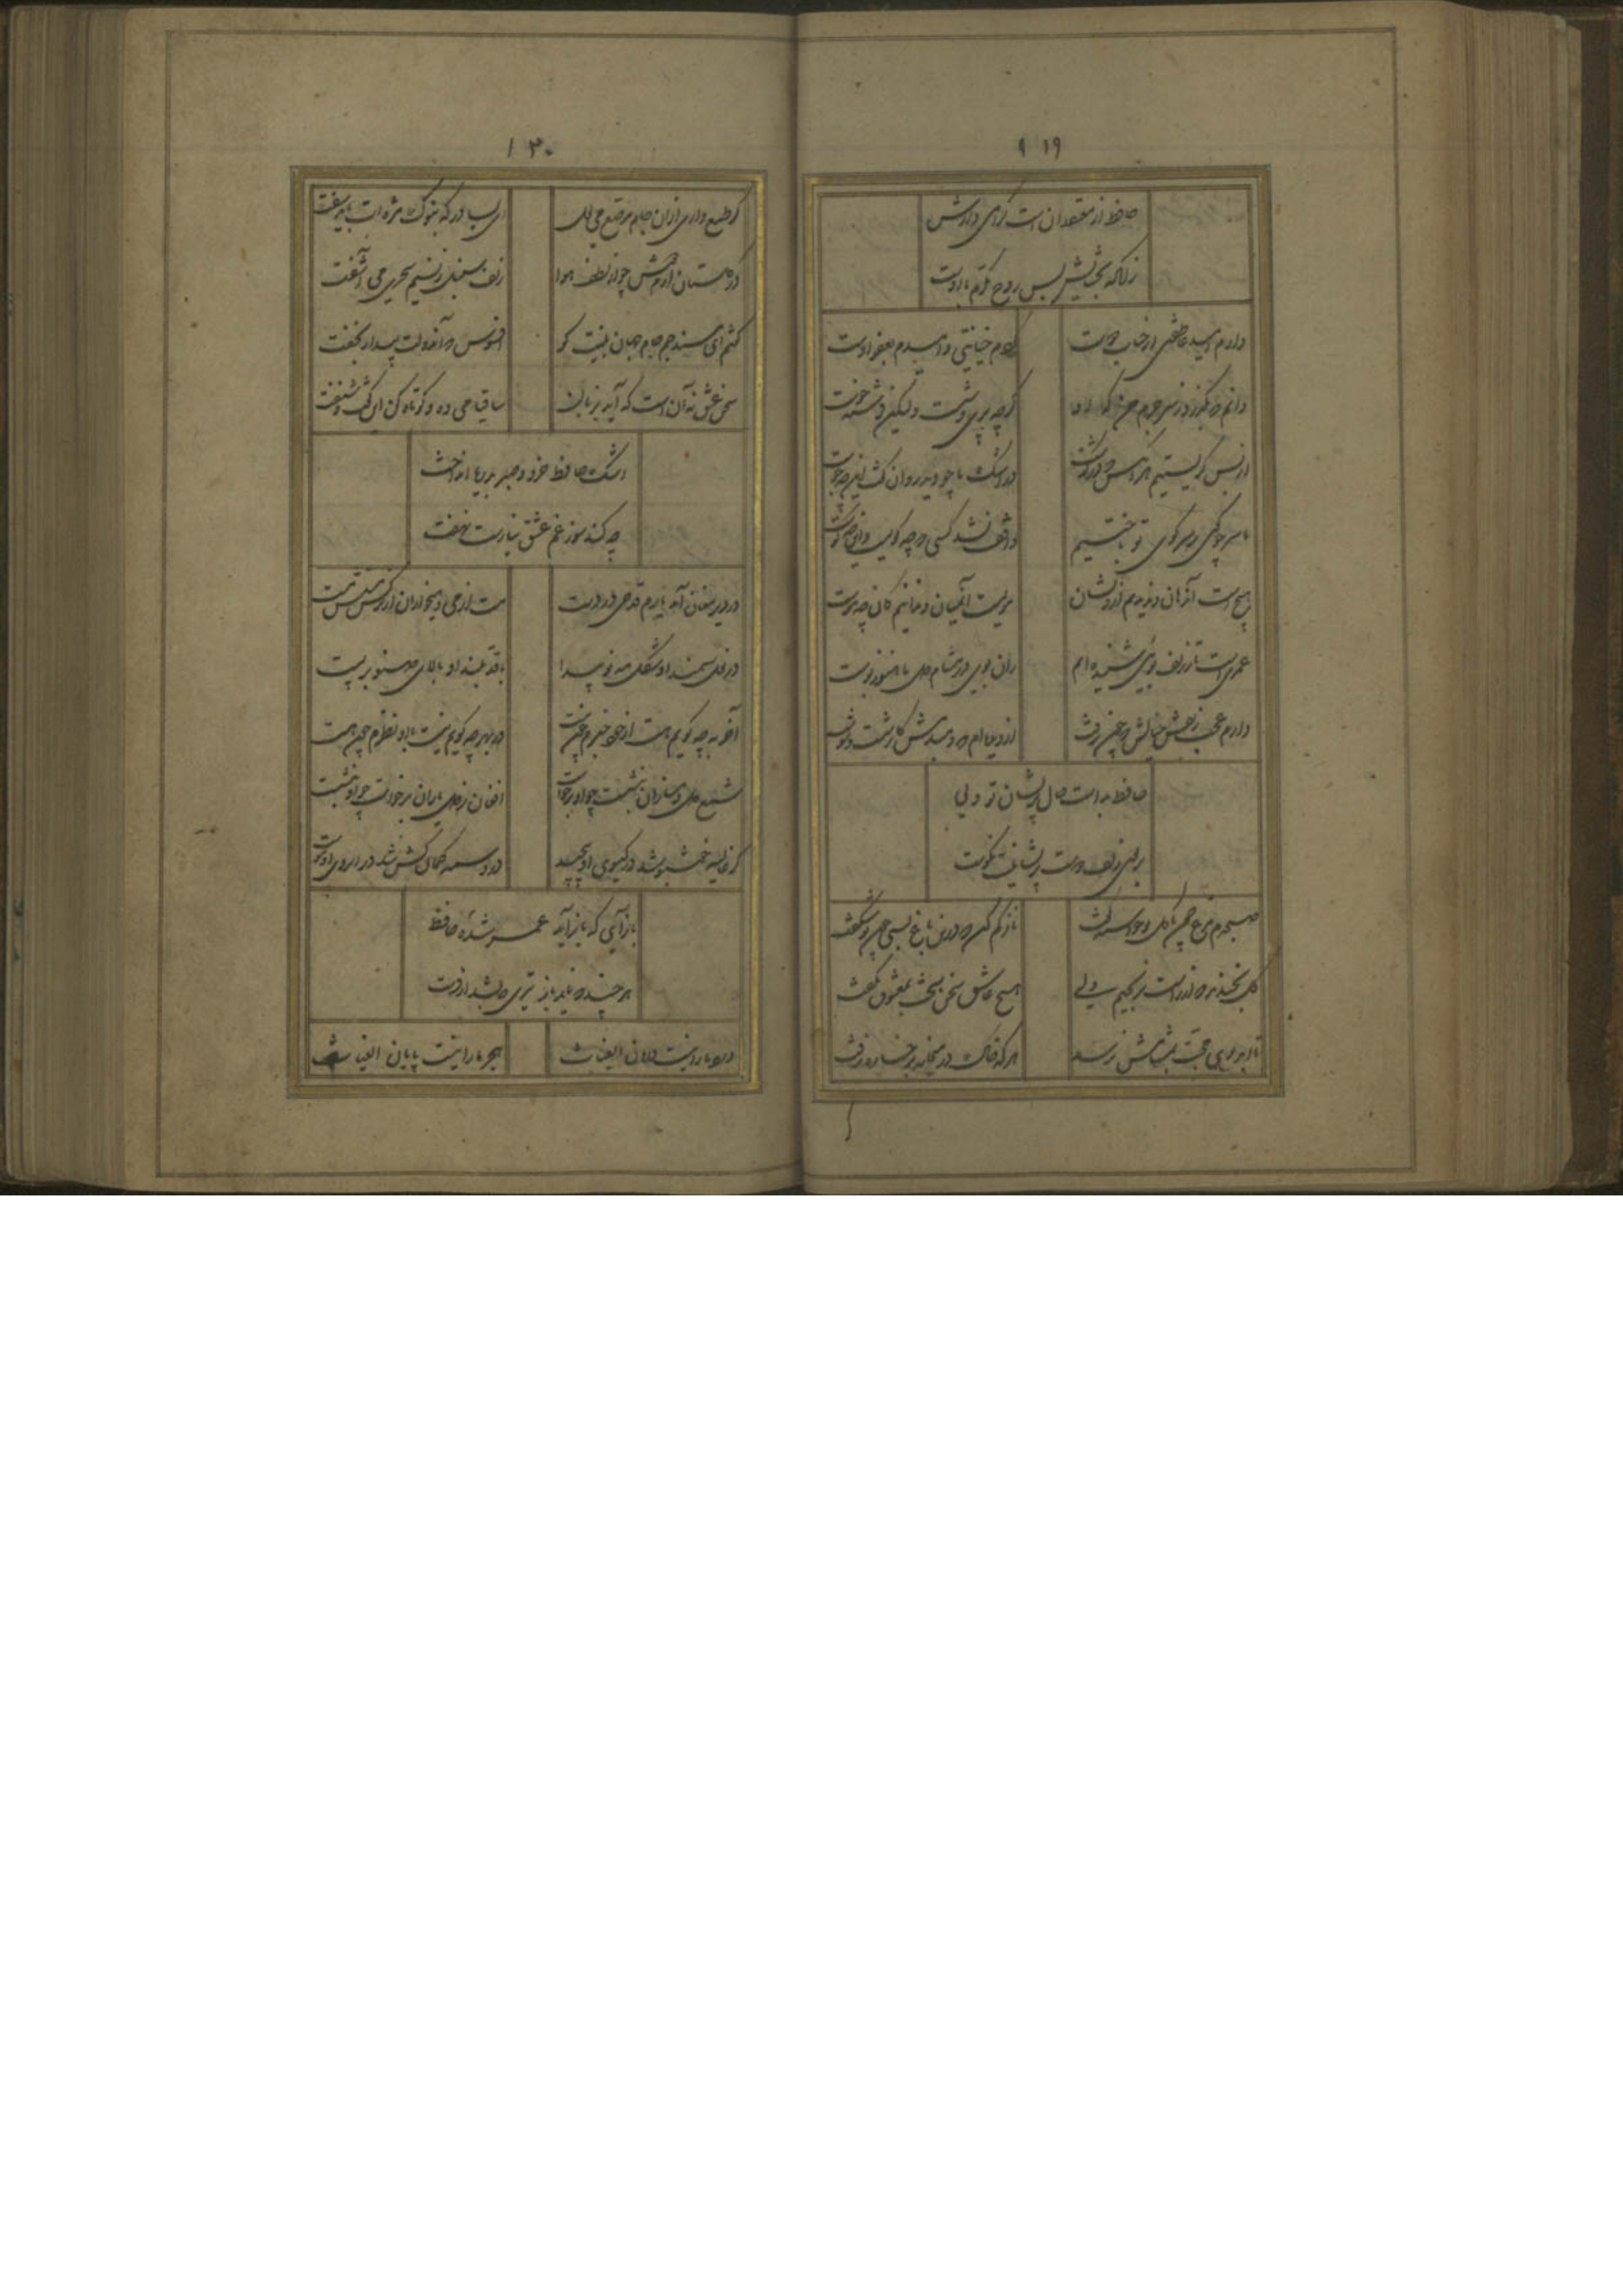 ۱۹
حافظ از معتقدان است گرامی دارش
زانکه بخشایش بس روح مکرم با اوست
دارم امید عاطفتی از جناب دوست
کردم خیانتی و امیدم بعفو اوست
دانم که بگذرد ز سر جرم من که او
گرچه پریوشست ولیکن فرشته خوست
هیچ است آن دهان و نبینم ازو نشان
موییست آن میان و ندانم که آن چه موست
عمریست تا ز زلف تو بویی شنیده ام
زان بوی در مشام دل ما هنوز بوست
دارم عجب ز نقش خیالش که چون نرفت
از دیده ام که دمبدمش کار شست و شوست
حافظ بد است حال پریشان تو ولی
بر بوی زلف دوست پریشانیت نکوست
صبحدم مرغ چمن با گل نوخاسته گفت
ناز کم کن که درین باغ بسی چون تو شکفت
گل بخندید که از راست نرنجیم ولی
هیچ عاشق سخن سخت بمعشوق نگفت
تا ابد بوی محبت بمشامش نرسد
هر که خاک در میخانه برخساره نرفت
۱۳۰
گر طمع داری ازان جام مرصع می لعل
ای بسا در که بنوک مژه ات باید سفت
در گلستان ارم دوش چو از لطف هوا
زلف سنبل ز نسیم سحری می آشفت
گفتم ای مسند جم جام جهان بینت کو
افسوس که آن دولت بیدار بخفت
سخن عشق نه آن است که آید بزبان
ساقیا می ده و کوتاه کن این گفت و شنفت
اشک حافظ خرد و صبر بدریا انداخت
چه کند سوز غم عشق نیارست نهفت
در دیر مغان آمد یارم قدحی در دست
مست از می و میخواران از نرگس مستش مست
در نعل سمند او شکل مه نو پیدا
با قد بلند او بالای صنوبر پست
آخر بچه گویم هست از خود خبرم چون نیست
وز بهر چه گویم نیست با او نظرم چون هست
شمع دل دمسازان بنشست چو او برخاست
افغان ز دل یاران برخاست چو او بنشست
گر غالیه خوشبو شد در گیسوی او پیچید
ور وسمه کمانکش شد در ابروی او پیوست
بازآی که بازآید عمر شده حافظ
هر چند که ناید باز تیری که بشد از شست
درد ما را نیست درمان الغیاث
هجر ما را نیست پایان الغیاث